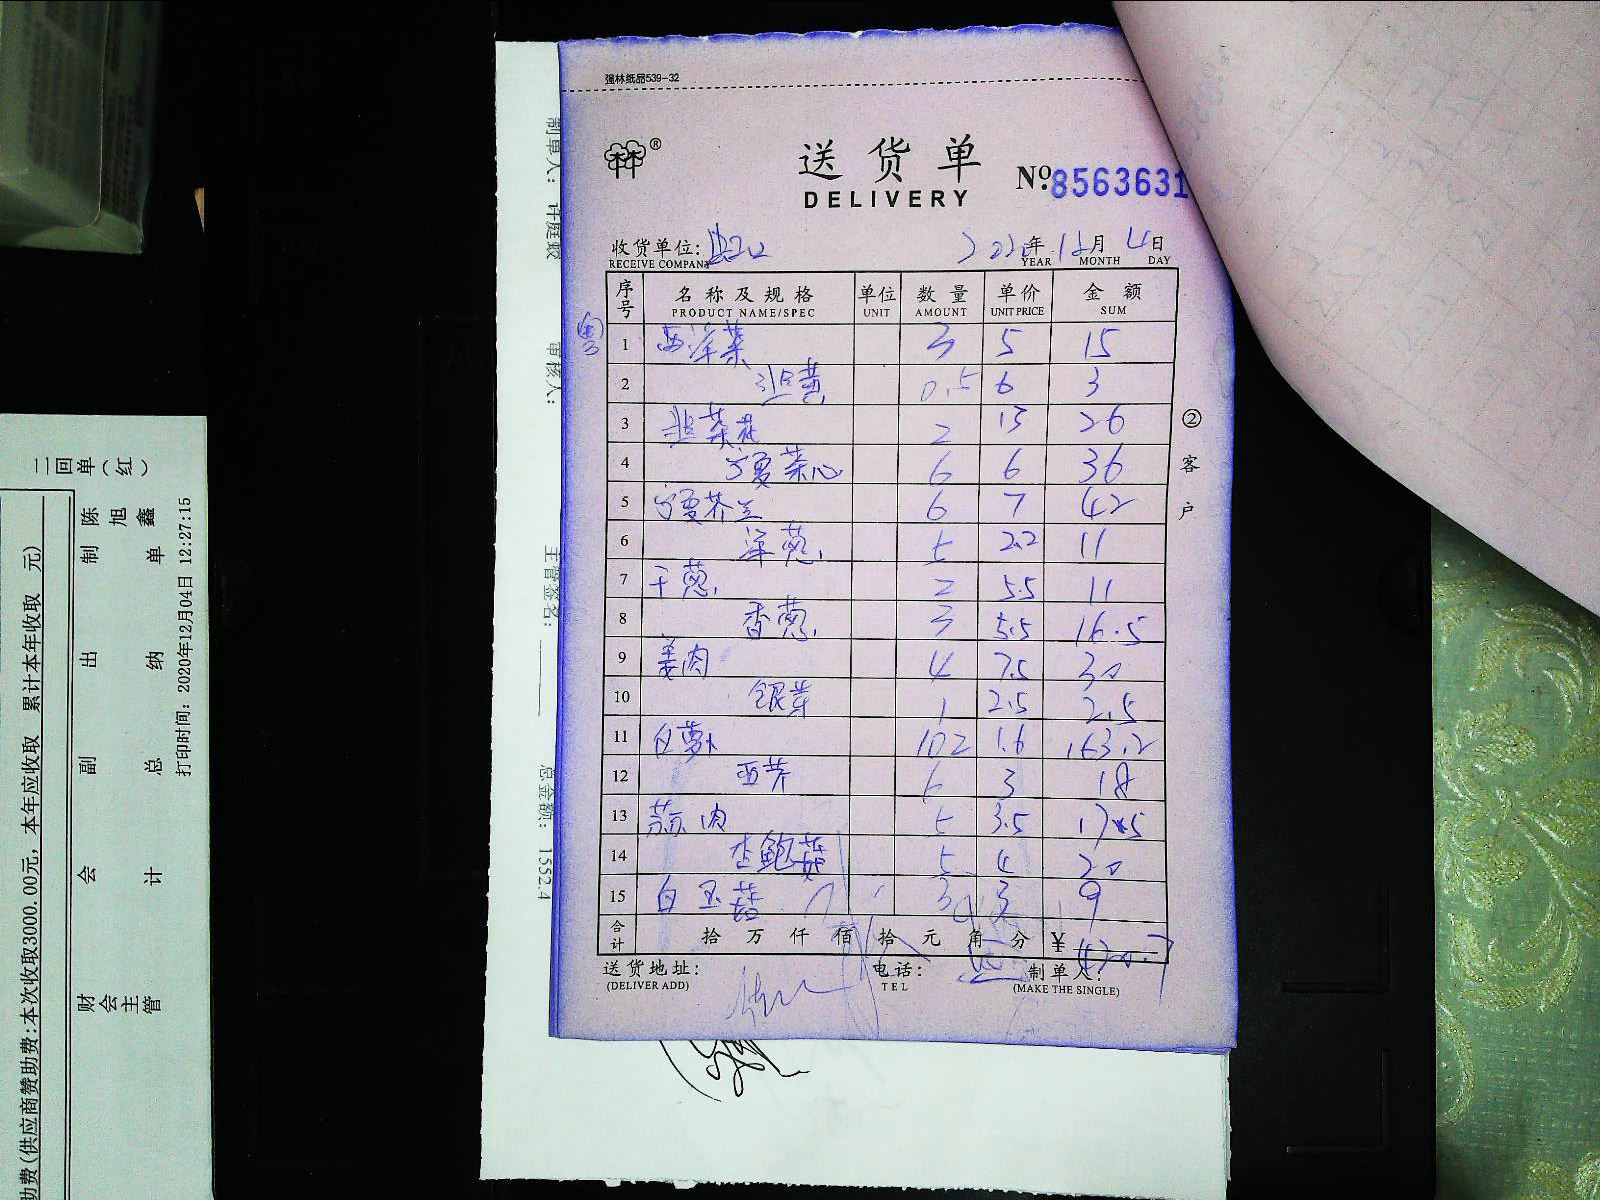 强林纸品539-32
林®
送货单
DELIVERY
№.8563631
收货单位:
RECEIVE COMPANY
2020年12月4日
YEAR MONTH DAY
序号 名称及规格 单位 数量 单价 金额
PRODUCT NAME/SPEC UNIT AMOUNT UNIT PRICE SUM
1 西洋菜 3 5 15
2 韭黄 0.5 6 3
3 韭菜花 2 13 26
4 宁夏菜心 6 6 36
5 宁夏芥兰 6 7 42
6 洋葱 5 2.2 11
7 干葱 2 5.5 11
8 香葱 3 5.5 16.5
9 姜肉 4 7.5 30
10 银芽 1 2.5 2.5
11 白萝卜 102 1.6 163.2
12 西芹 6 3 18
13 蒜肉 5 3.5 17.5
14 杏鲍菇 5 4 20
15 白玉菇 3 3 9
合计 拾万仟佰拾元角分 ¥ 420.7
送货地址:
(DELIVER ADD)
电话:
TEL
制单人:
(MAKE THE SINGLE)
②客户
制单人: 许庭
审核人:
主管签名:
总金额: 1552.4
二回单(红)
助费(供应商赞助费:本次收取3000.00元, 本年应收取 累计本年收取 元)
财会主管 会计 副总 出纳 制单 陈旭鑫
打印时间: 2020年12月04日 12:27:15